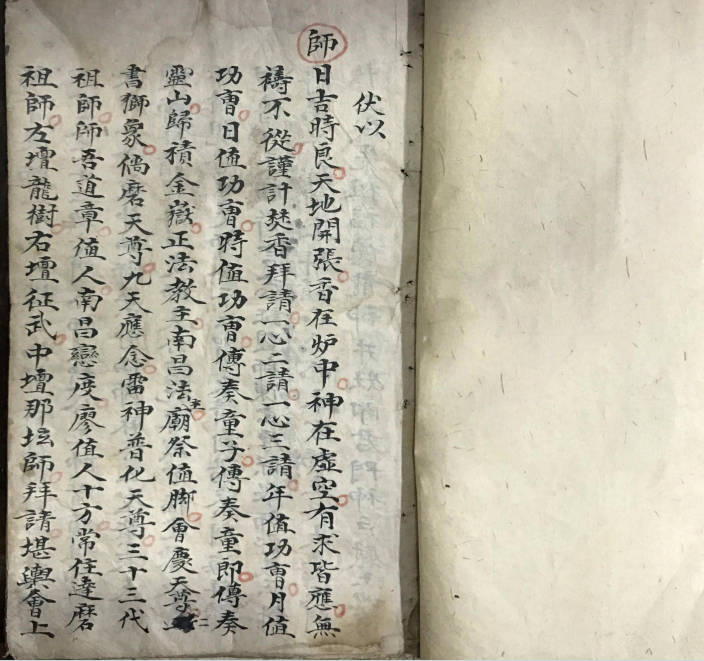 伏以
師日吉時良天地開張香在炉中神在虛空有求皆應無
禱不從謹計焚香拜請一心二請一心三請年值功曺月值
功曺日值功曺時值功曺傳奏童子傳奏童郎傳奏
靈山歸積金嶽正法教主南昌法主廟祭值脚會慶天尊仁
書御象倘磨天尊九天應念雷神普化天尊三十三代
祖師師吾道章值人南昌戀度廖值人十方常住達磨
祖師左壇龍樹右壇征武中壇那坛師拜請堪輿會上